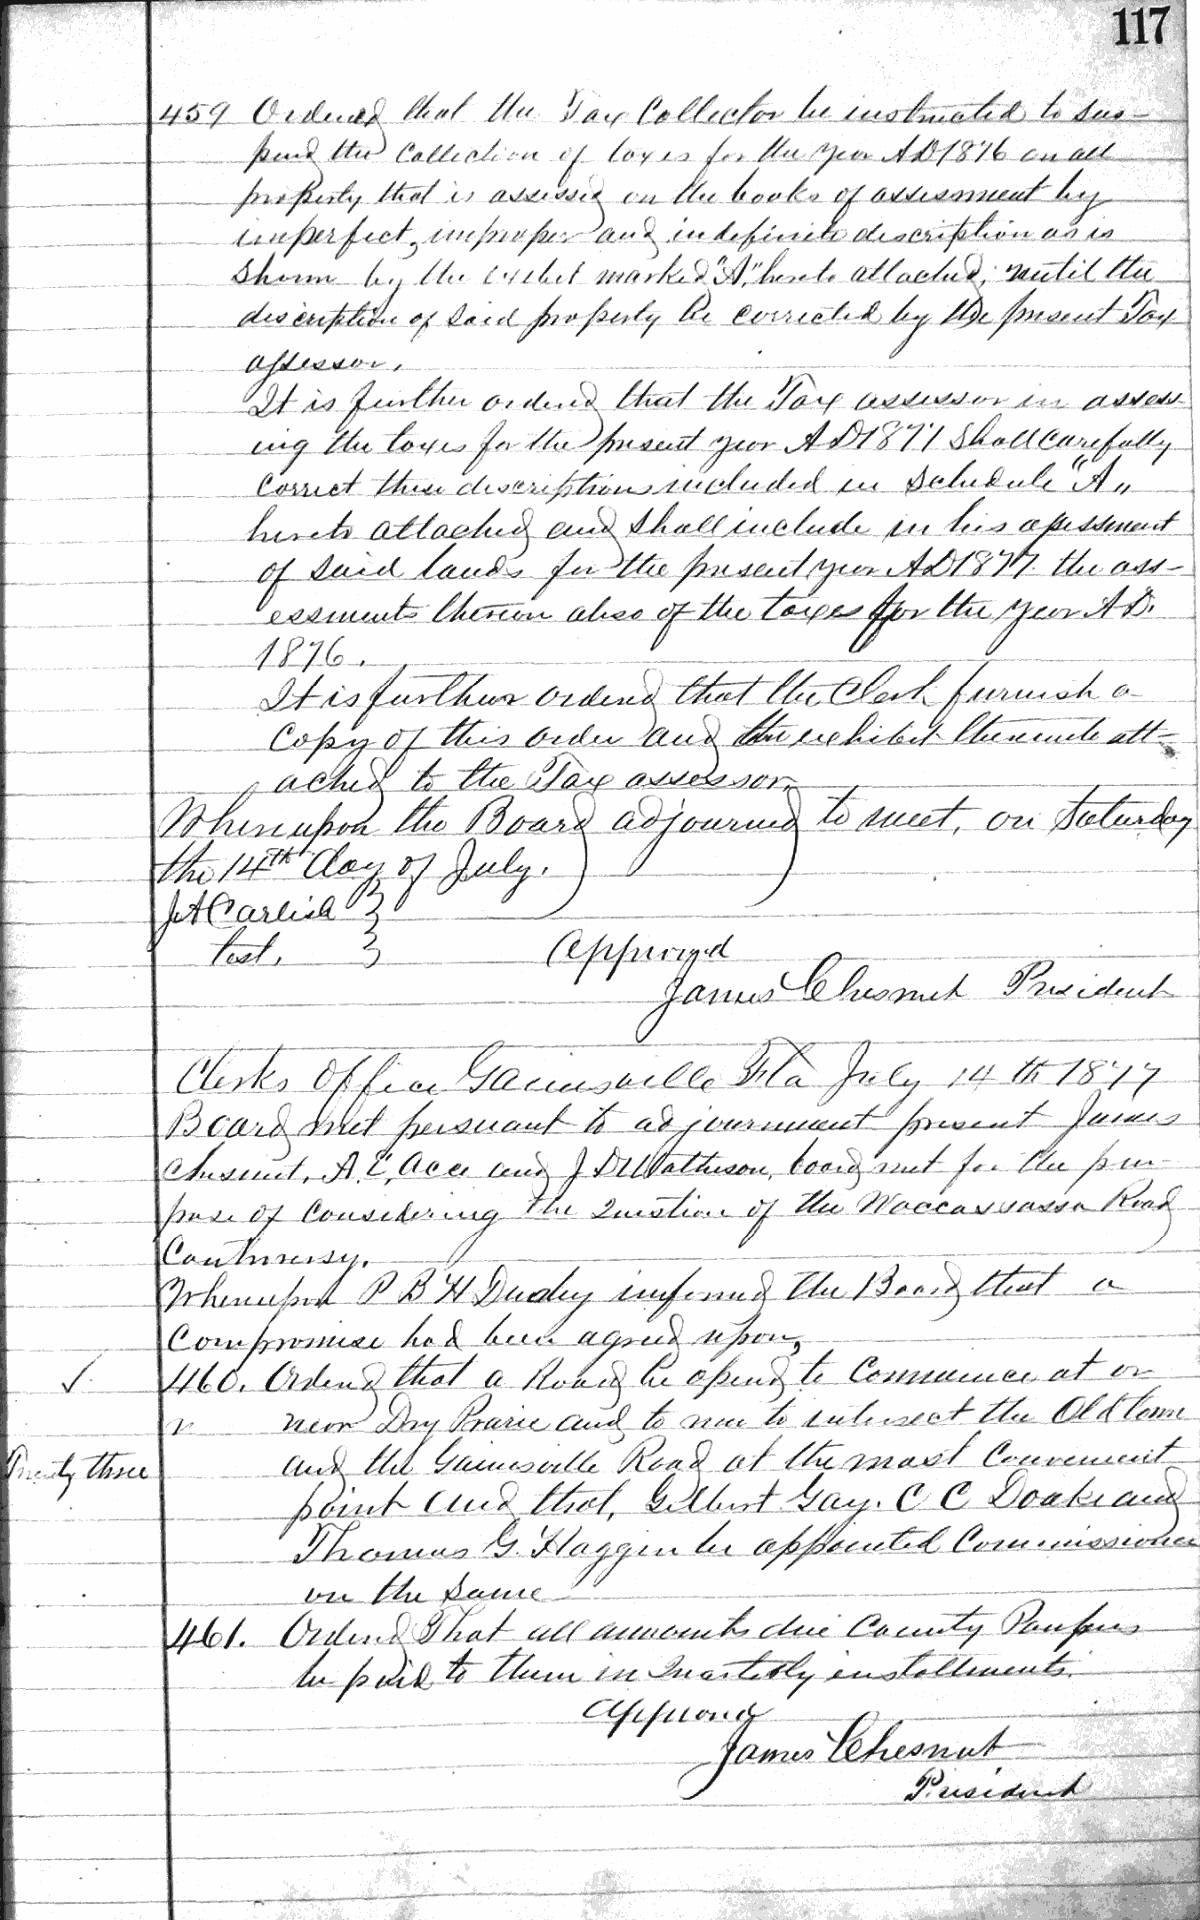 117
459 Ordered that the Tax Collector be instructed to sus-
pend the Collection of taxes for the year AD 1876 on all
property that is assessed on the books of assessment by
imperfect, improper and indefinite discription as is
Shown by the exibit marked "A", hereto attached, until the
discription of Said property be corrected by the present Tax
assessor.
It is further ordered that the Tax assessor in assess
ing the taxes for the present year AD 1877 Shall Carefully
Correct these discriptions included in Schedule "A"
hereto attached and Shall include in his assessment
of Said lands for the present year AD 1877. the ass-
essments thereon also of the taxes for the year AD.
1876.
It is further ordered that the Clerk furnish a
Copy of this order and the exhibit thereunto att-
ached to the Tax assessor.
Whereupon the Board adjourned to meet, on Saturday
the 14th day of July.
J A Carlisle }
test. } Approved
James Chesnut President
Clerks Office Gainesville Fla July 14th 1877
Board met persuant to adjournment present James
Chesnut, A. C. and J D Matheson, board met for the pur-
pose of Considering the Question of the Waccassassa Road
Controversy.
Whereupon P B H Dudley informed the Board that a
Compromise had been agreed upon,
✓ 460. Ordered that a Road be opened to Commence at or
near Dry Prairie and to run to intersect the Old town
Twenty three and the Gainesville Road at the most Convenient
point and that, Gilbert Gay. C C Doake and
Thomas G. Haggin be appointed Commissioners
on the Same
461. Ordered That all amounts due County Paupers
be paid to them in Quarterly installments.
Approved
James Chesnut
President